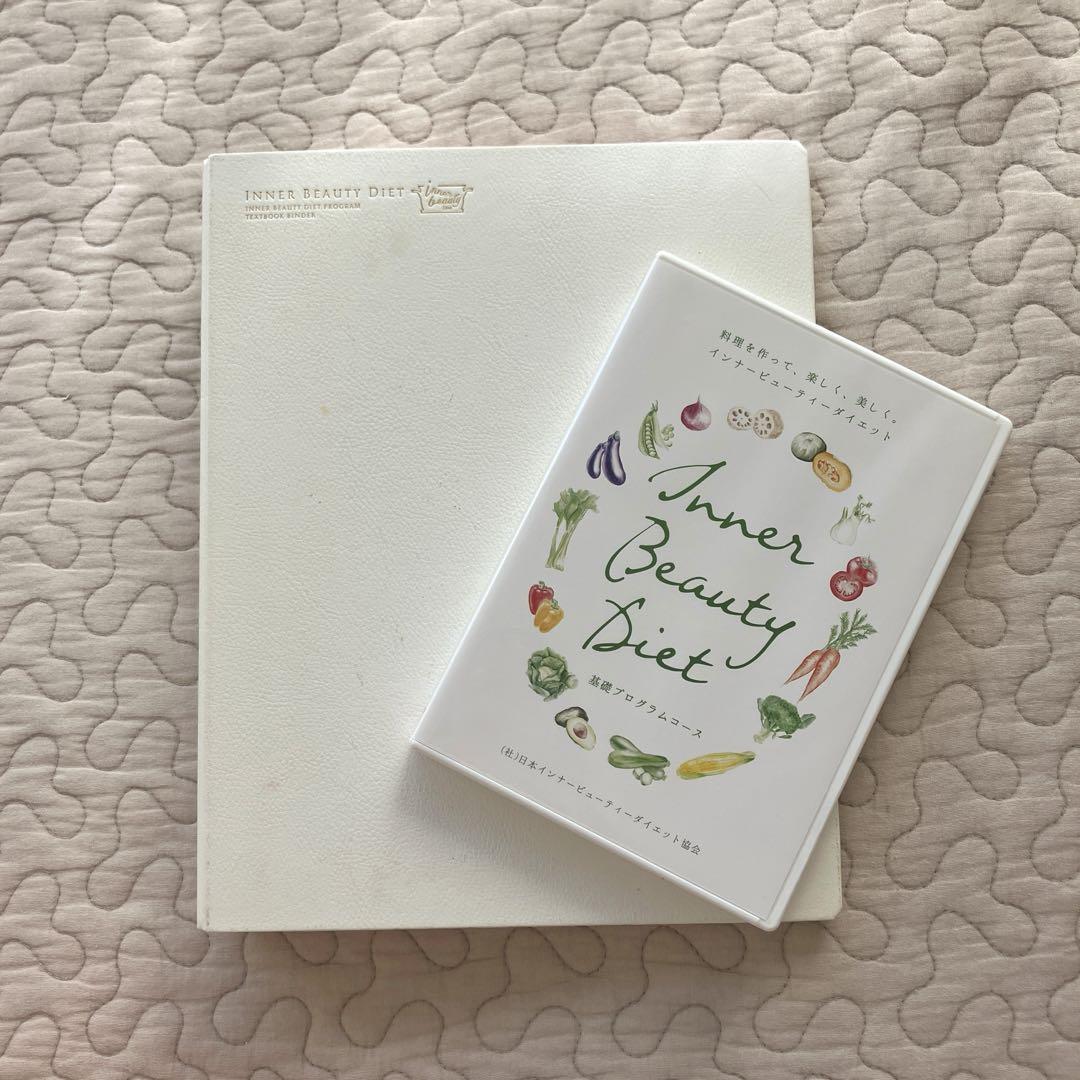 INNER BEAUTY DIET
INNER BEAUTY DIET PROGRAM
TEXTBOOK BINDER
inner
beauty
料理を作って、楽しく、美しく。
インナービューティーダイエット
Inner
Beauty
Diet
基礎プログラムコース
(社)日本インナービューティーダイエット協会